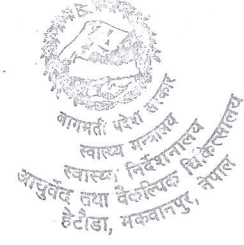 बागमती प्रदेश सरकार
स्वास्थ्य मन्त्रालय
स्वास्थ्य निर्देशनालय
आयुर्वेद तथा वैकल्पिक चिकित्सालय
हेटौंडा, मकवानपुर, नेपाल